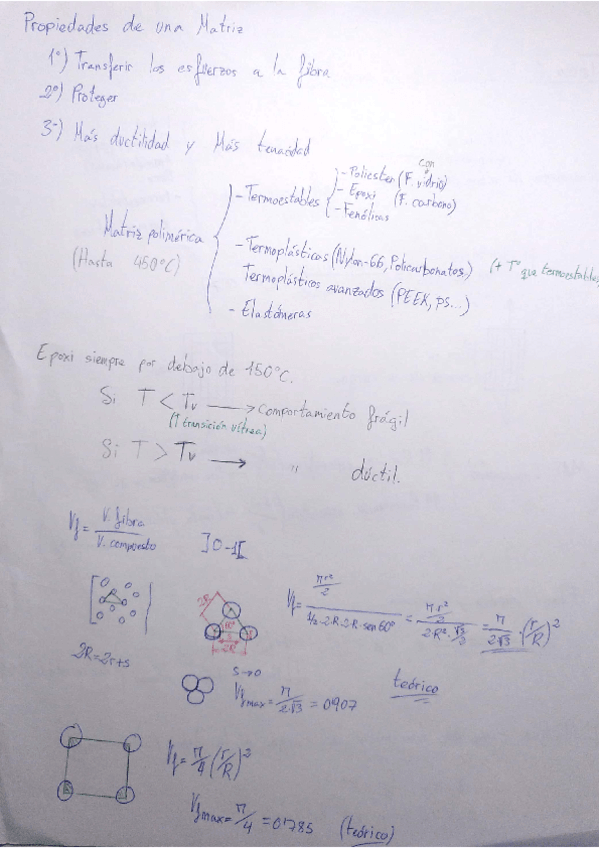 Propiedades de una Matriz
1º) Transferir los esfuerzos a la fibra
2º) Proteger
3º) Más ductilidad y Más tenacidad
Matriz polimérica
(Hasta 450ºC)
- Termoestables
- Poliester (F. vidrio)
con
- Epoxi (F. carbono)
- Fenólicas
- Termoplásticas (Nylon-66, Policarbonatos) (+ Tº que termoestables)
Termoplásticos avanzados (PEEK, PS...)
- Elastómeras
Epoxi siempre por debajo de 150ºC.
Si T < Tv → comportamiento frágil
(T transición vítrea)
Si T > Tv → " dúctil.
Vf = V. fibra / V. compuesto ]0-1[
2R
60º
2R
2R = 2r+s
Vf = (πr²/2) / (1/2·2R·2R·sen60º) = (πr²/2) / (2R²·√3/2) = π/(2√3)·(r/R)²
s→0
Vfmax = π/(2√3) = 0'907 teórico
Vf = π/4 (r/R)²
Vfmax = π/4 = 0'785 (teórico)